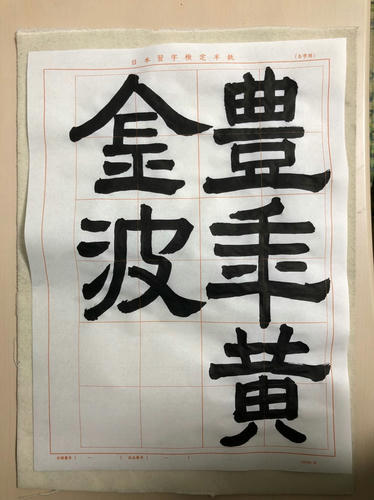 日本習字検定半紙
豊年黄
金波